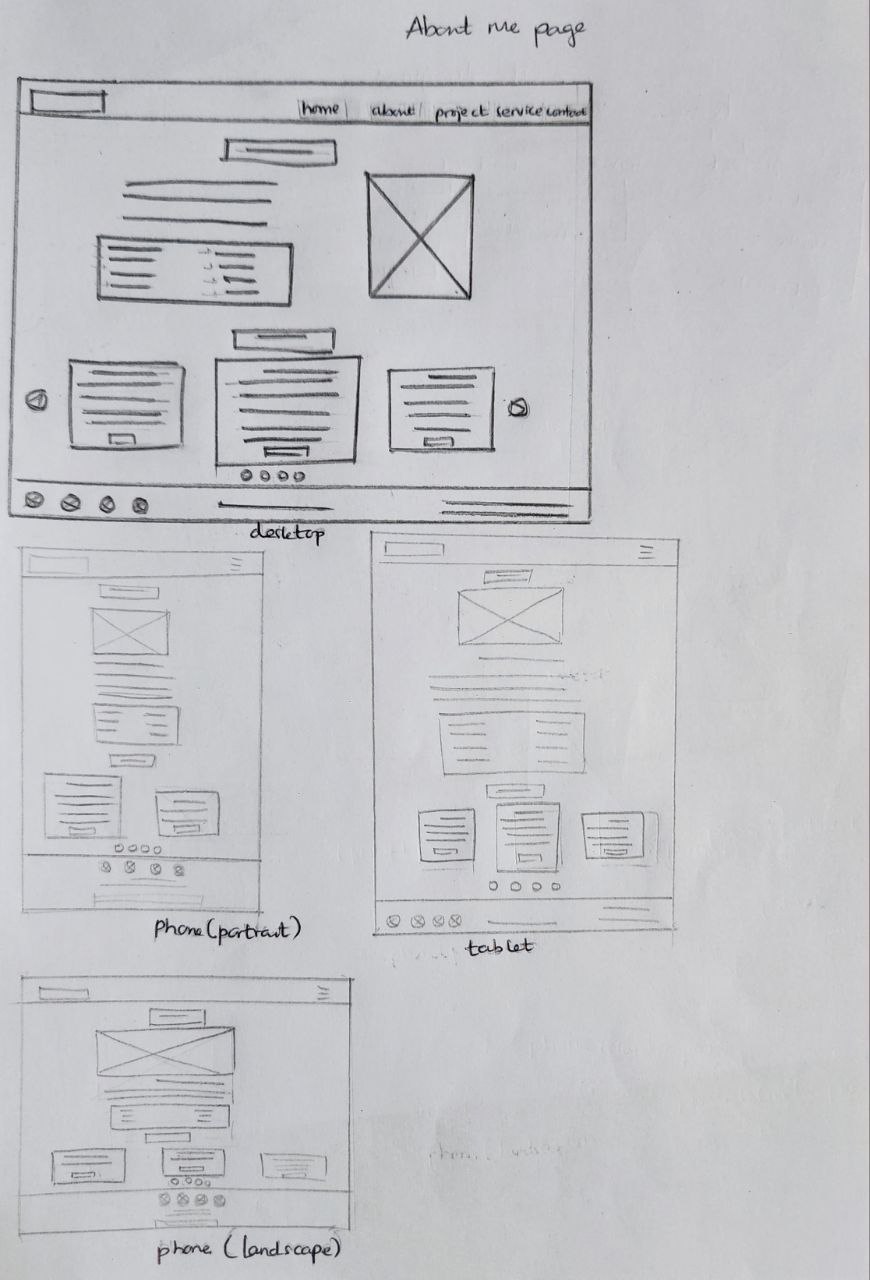 About me page
home about project service contact
desktop
phone (portrait)
tablet
phone (landscape)